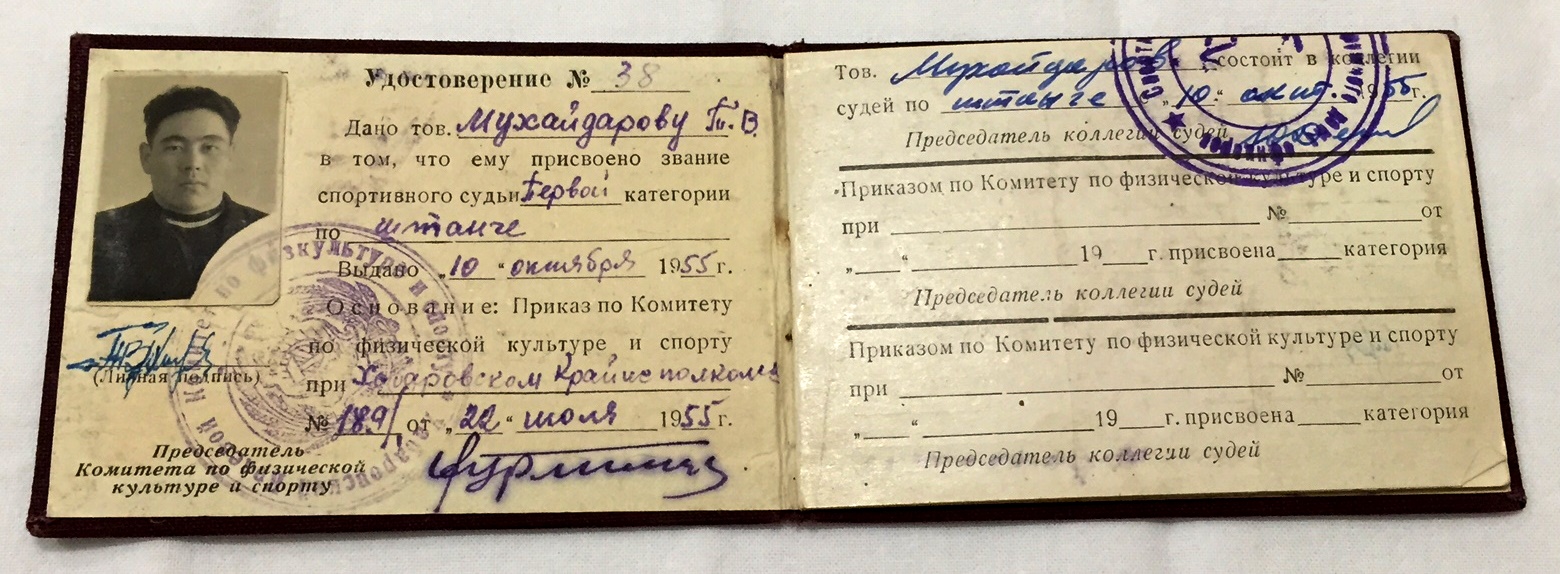 Удостоверение № 38
Дано тов. Мухайдарову Т. В.
в том, что ему присвоено звание
спортивного судьи Первой категории
по штанге
Выдано „10“ октября 1955 г.
Основание: Приказ по Комитету
по физической культуре и спорту
при Хабаровском Крайисполкоме
№ 189/ от „22“ июля 1955 г.
(Личная подпись)
Председатель
Комитета по физической
культуре и спорту
Тов. Мухайдаров состоит в коллегии
судей по штанге „10“ окт. 1955 г.
Председатель коллегии судей
Приказом по Комитету по физической культуре и спорту
при № от
„ “ 19 г. присвоена категория
Председатель коллегии судей
Приказом по Комитету по физической культуре и спорту
при № от
„ “ 19 г. присвоена категория
Председатель коллегии судей